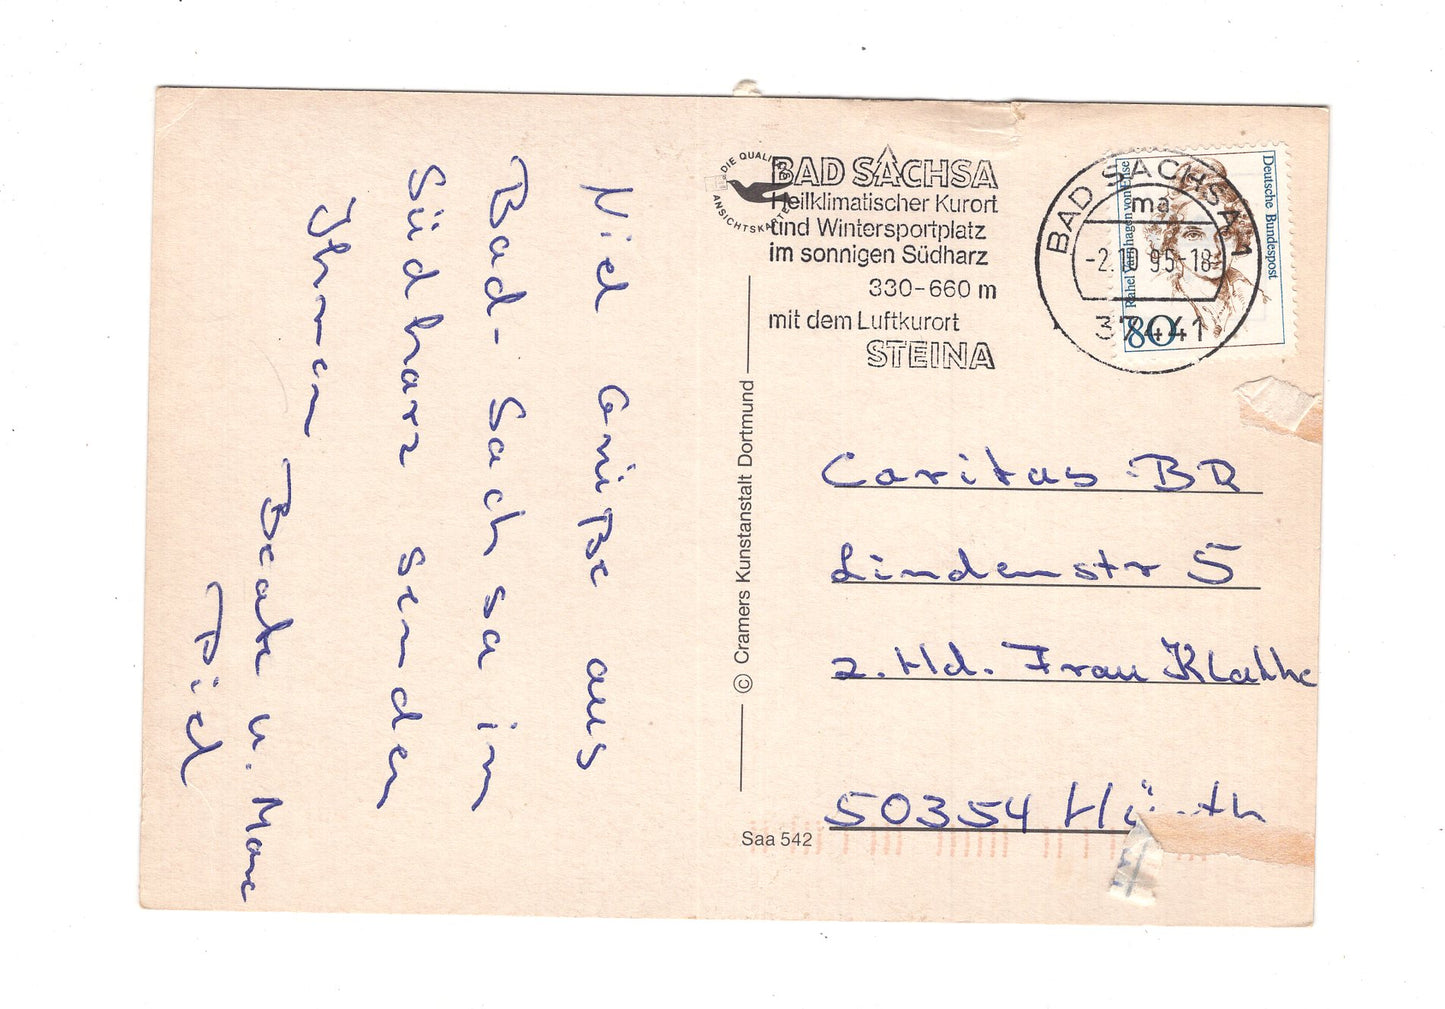 Viel Grüße aus
Bad-Sachsa im
Südharz senden
Ihnen Beate u.
Piel
DIE QUALI
ANSICHTSKARTE
BAD SACHSA
Heilklimatischer Kurort
und Wintersportplatz
im sonnigen Südharz
330-660 m
mit dem Luftkurort
STEINA
BAD SACHSA 1
ma
-2.10 95-18
37441
Deutsche Bundespost
Rahel Varnhagen von Ense
80
© Cramers Kunstanstalt Dortmund
Caritas BR
Lindenstr 5
z. Hd. Frau
50354 Hürth
Saa 542